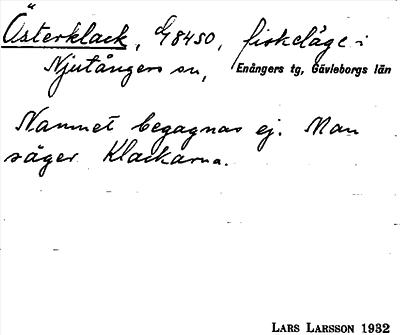 Österklack, G8450, fiskeläge i
Njutångers sn, Enångers tg, Gävleborgs län
Namnet begagnas ej. Man
säger Klackarna.
LARS LARSSON 1932